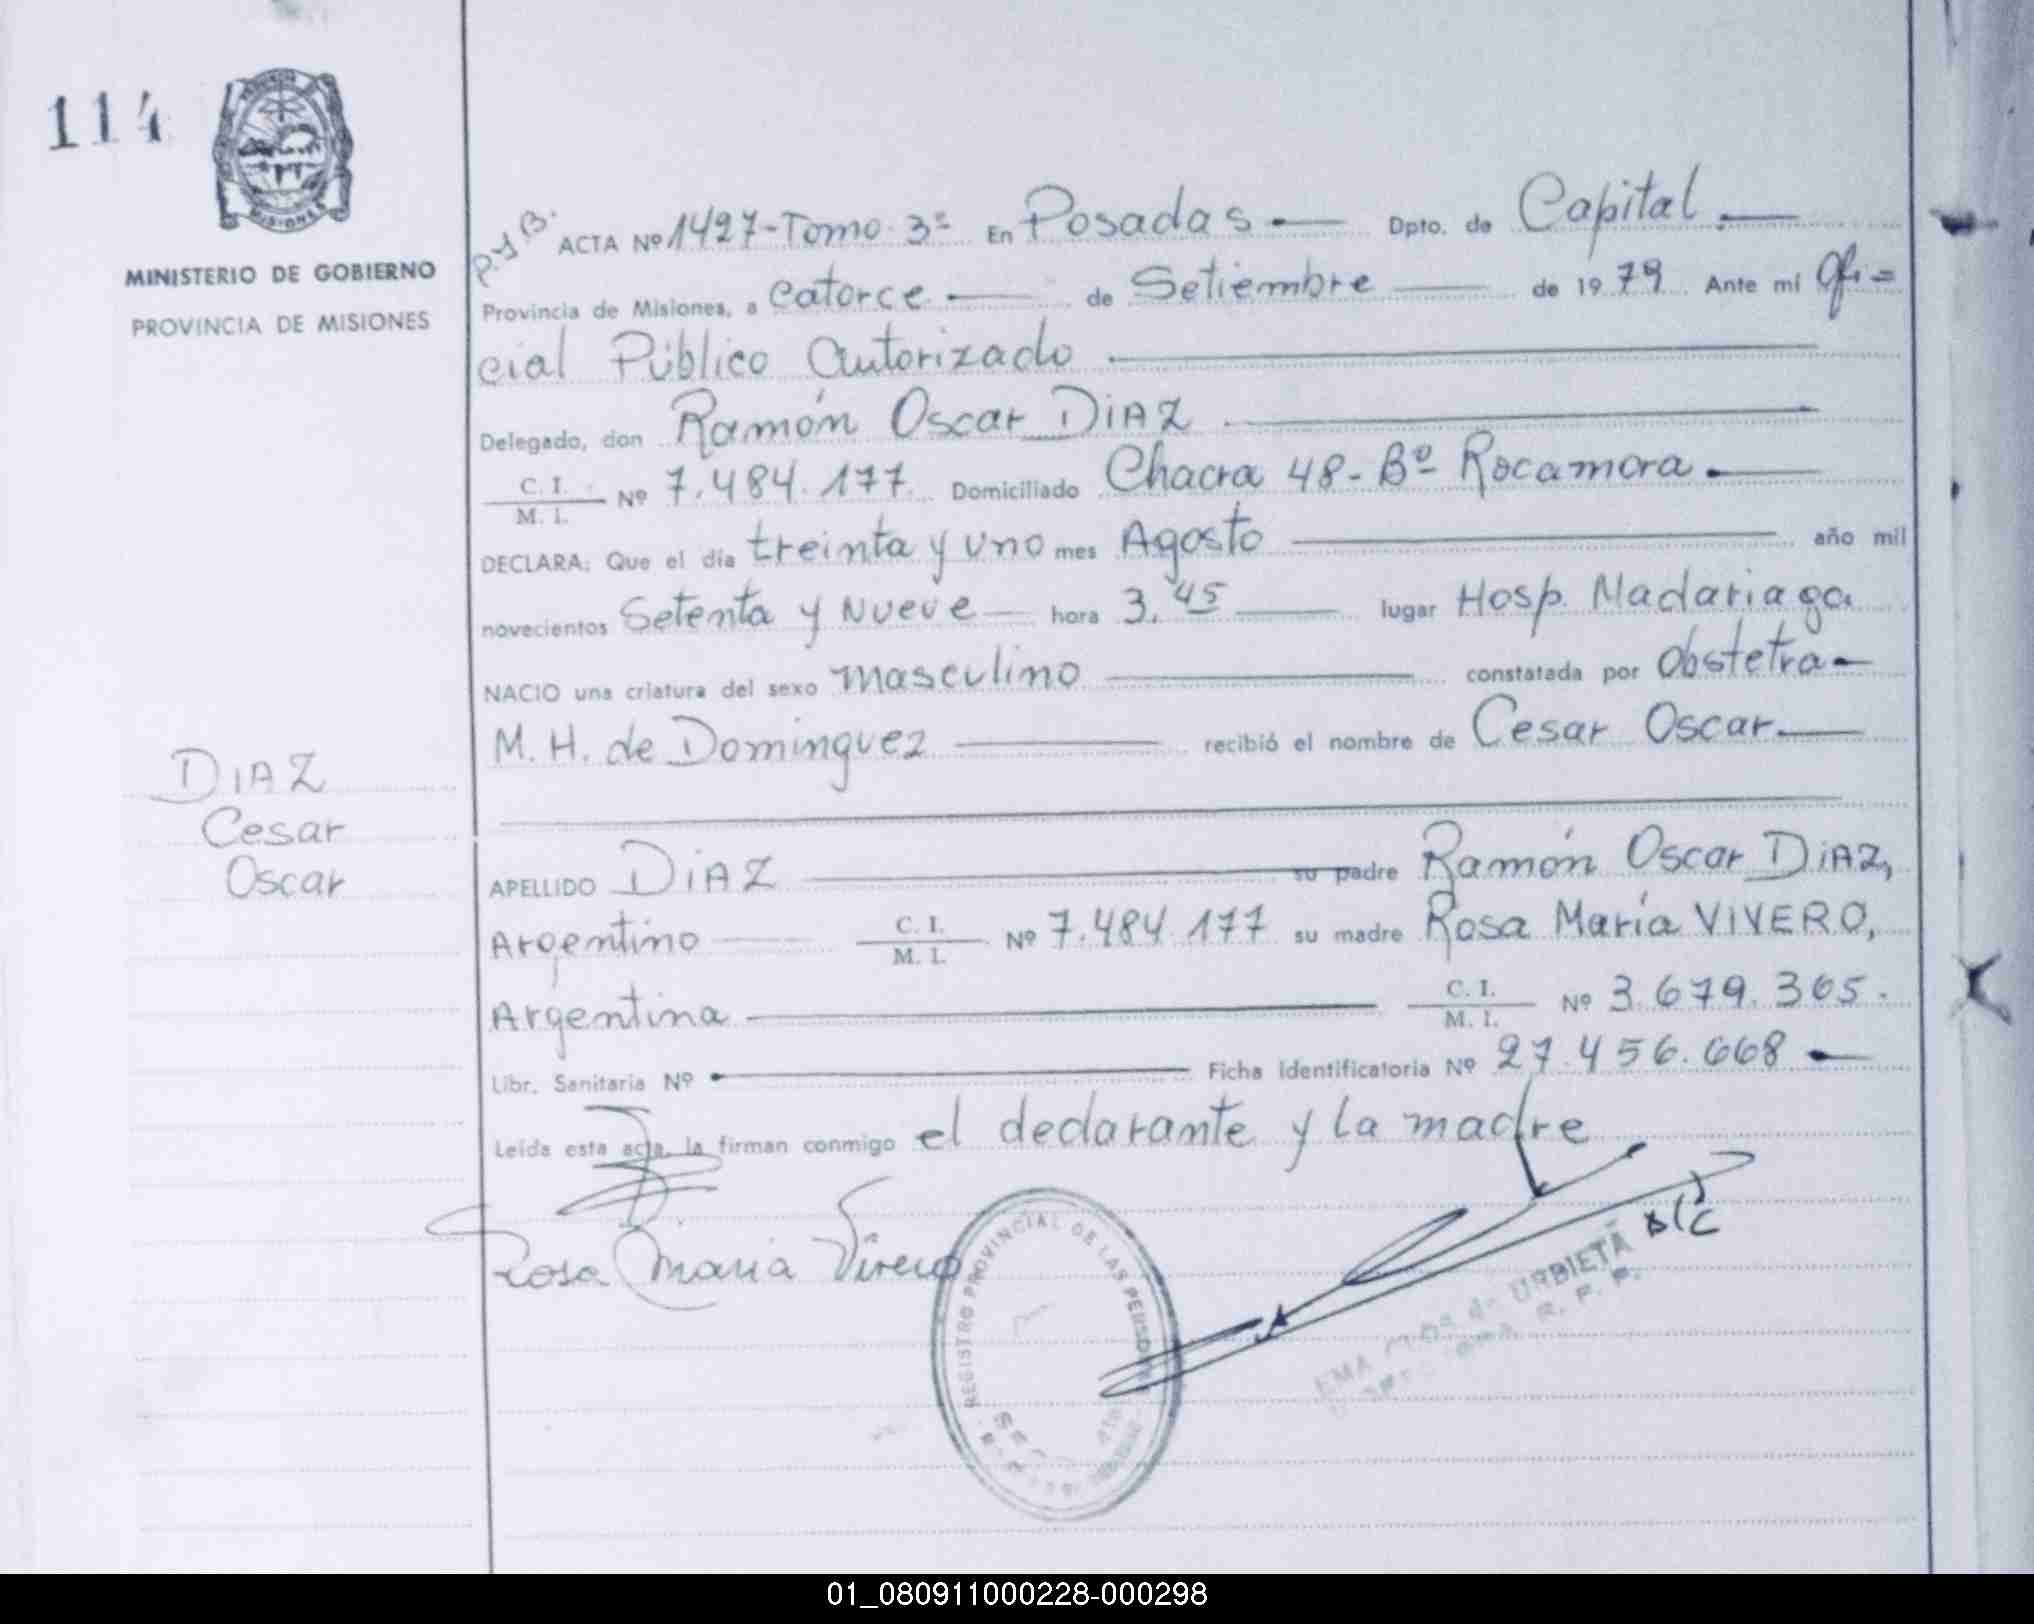 114
MINISTERIO DE GOBIERNO
PROVINCIA DE MISIONES
P.yB. ACTA Nº 1427-Tomo 3º En Posadas Dpto. de Capital
Provincia de Misiones, a catorce de Setiembre de 1979 Ante mí Ofi=
cial Público Autorizado
Delegado, don Ramón Oscar DIAZ
C. I.
M. I. Nº 7.484.177 Domiciliado Chacra 48-Bº Rocamora
DECLARA: Que el día treinta y uno mes Agosto año mil
novecientos Setenta y Nueve hora 3.45 lugar Hosp. Madariaga
NACIO una criatura del sexo masculino constatada por Obstetra
M. H. de Dominguez recibió el nombre de Cesar Oscar
DIAZ
Cesar
Oscar
APELLIDO DIAZ su padre Ramón Oscar DIAZ,
Argentino C. I. M. I. Nº 7.484.177 su madre Rosa María VIVERO,
Argentina C. I. M. I. Nº 3.679.365.
Libr. Sanitaria Nº Ficha identificatoria Nº 27.456.668
Leída esta acta, la firman conmigo el declarante y la madre
Rosa Maria Vivero
REGISTRO PROVINCIAL DE LAS PERSONAS
EMA de URBIETA
R. P. P.
01_080911000228-000298